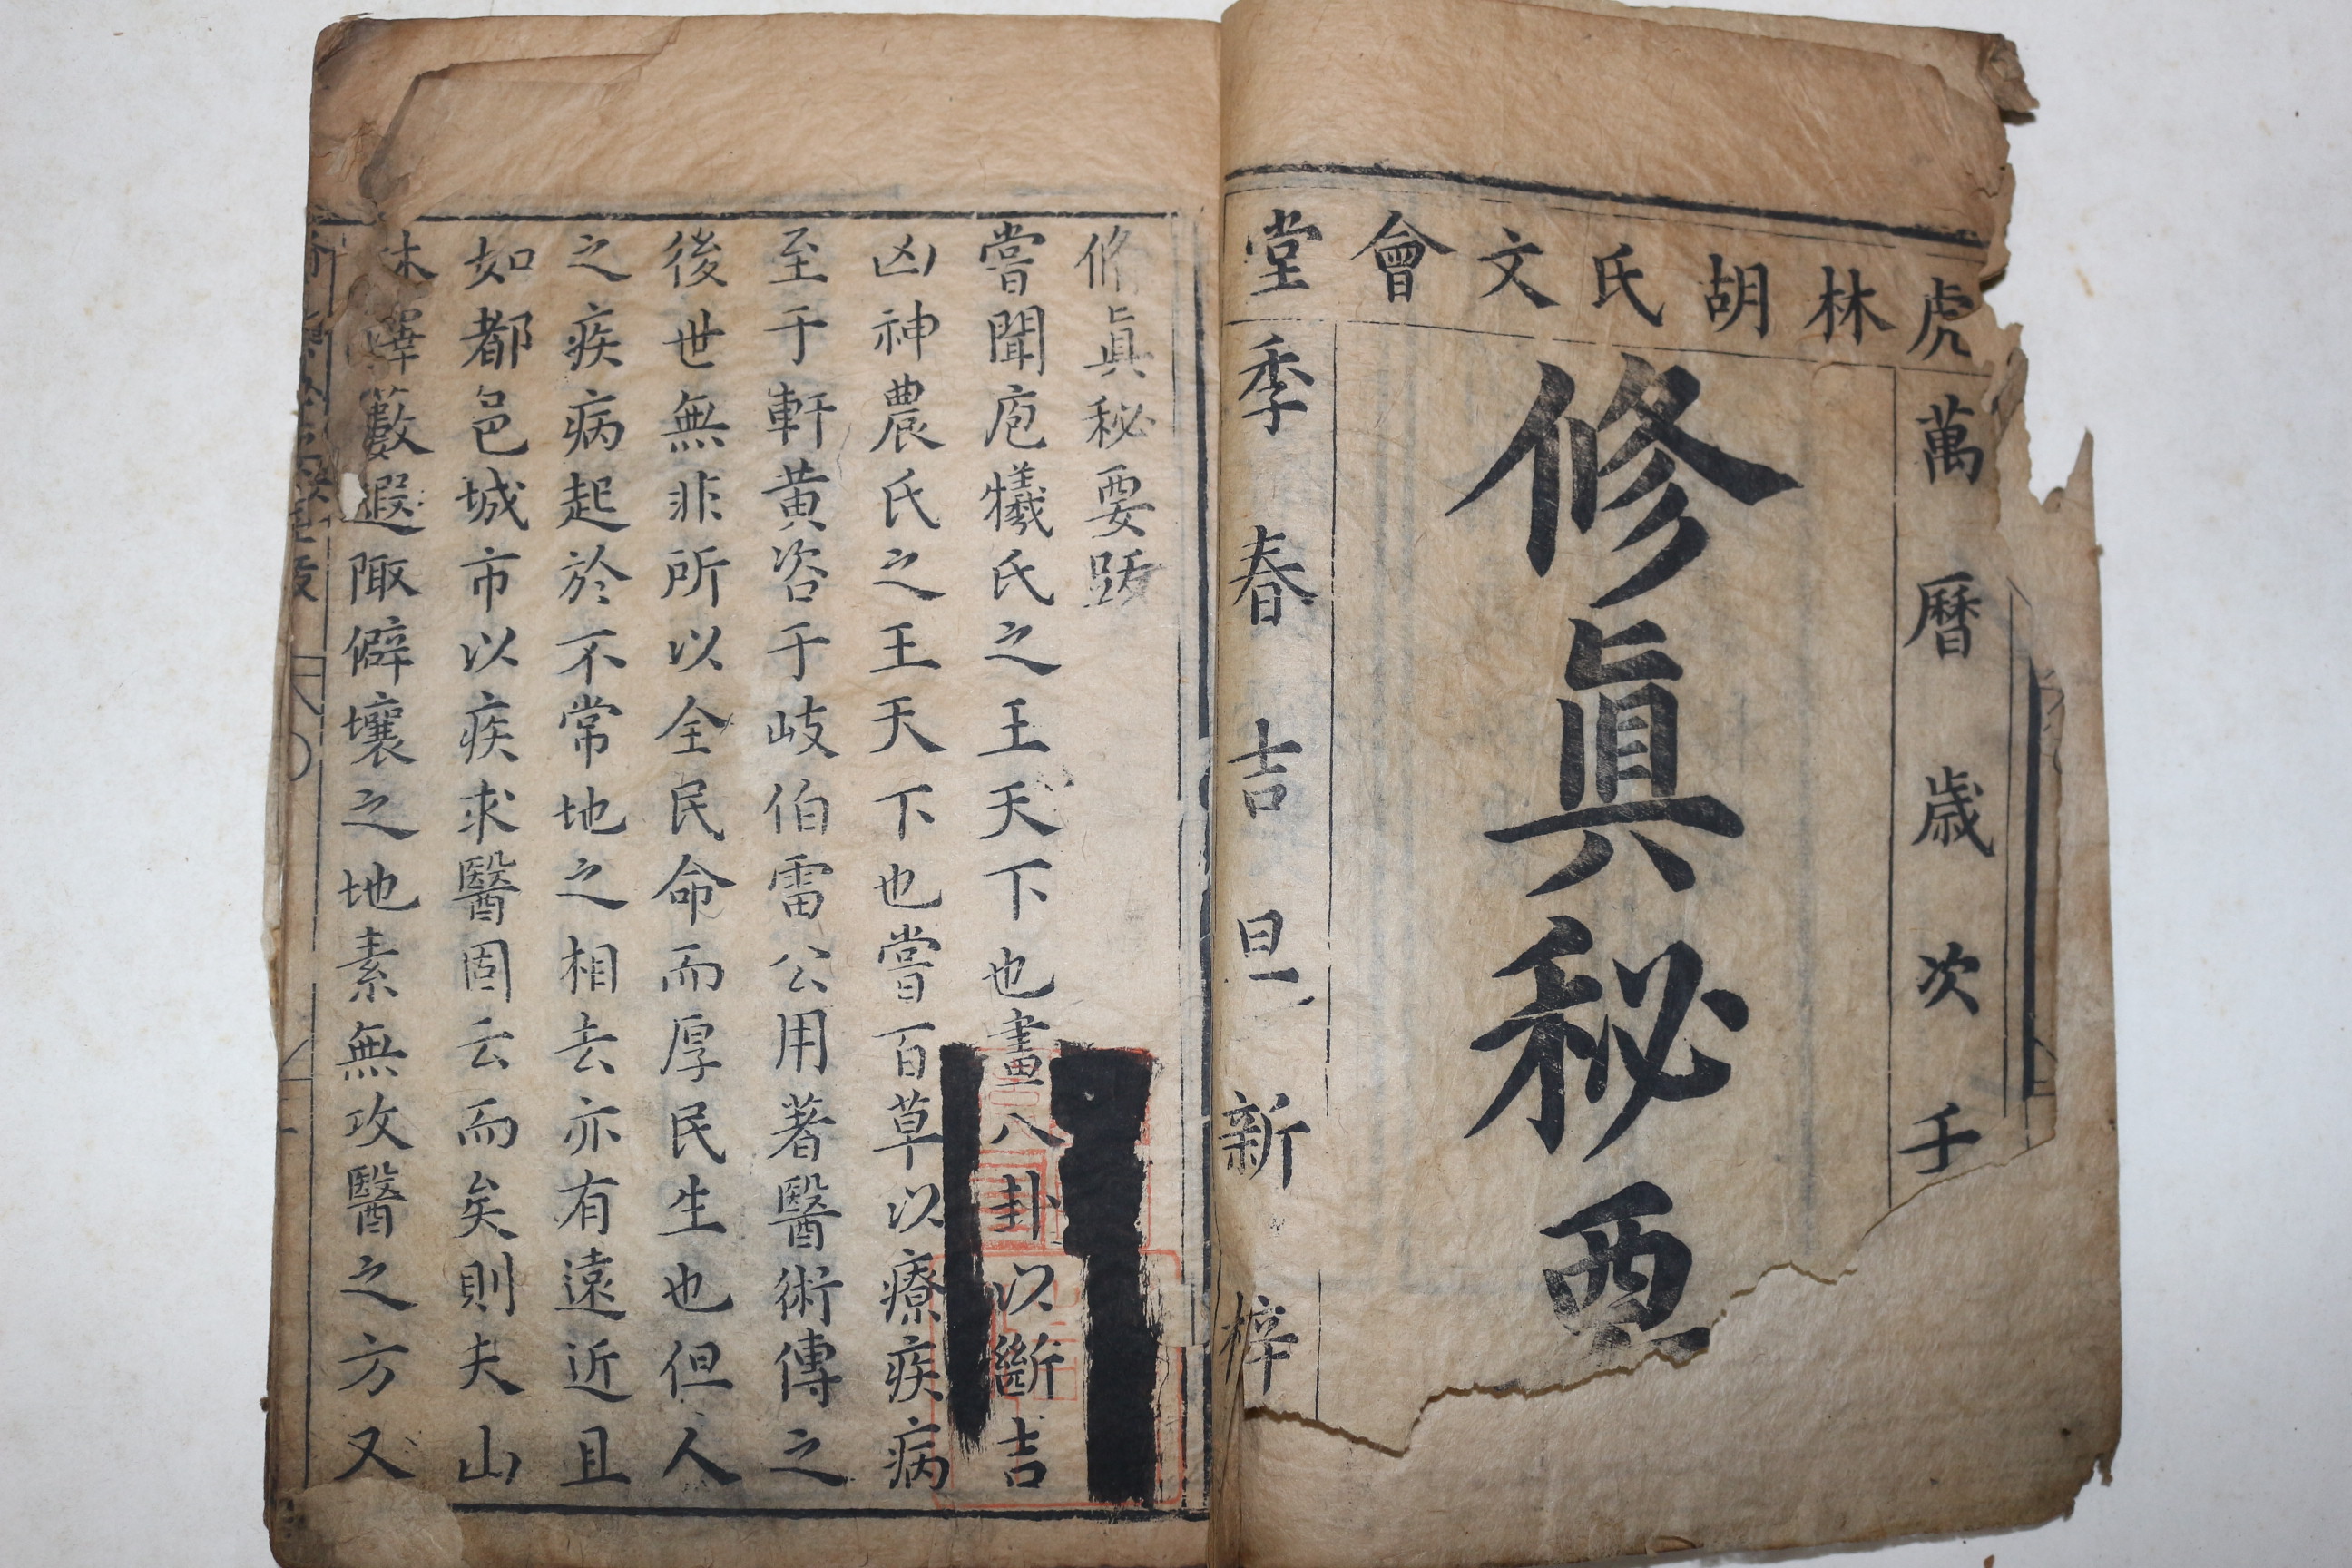 虎林胡氏文會堂
萬曆歲次壬
修眞秘要
季春吉旦新梓
修眞秘要䟦
嘗聞庖犧氏之王天下也畫八卦以斷吉
凶神農氏之王天下也嘗百草以療疾病
至于軒黃咨于岐伯雷公用著醫術傳之
後世無非所以全民命而厚民生也但人
之疾病起於不常地之相去亦有遠近且
如都邑城市以疾求醫固云而矣則夫山
林藪遐陬僻壤之地素無攻醫之方又